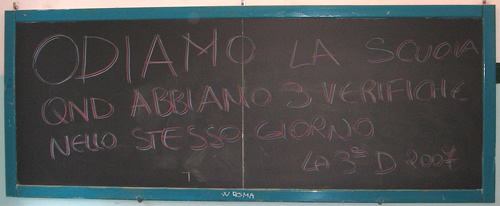 ODIAMO LA SCUOLA
QND ABBIAMO 3 VERIFICHE
NELLO STESSO GIORNO
LA 3ª D 2007
W ROMA